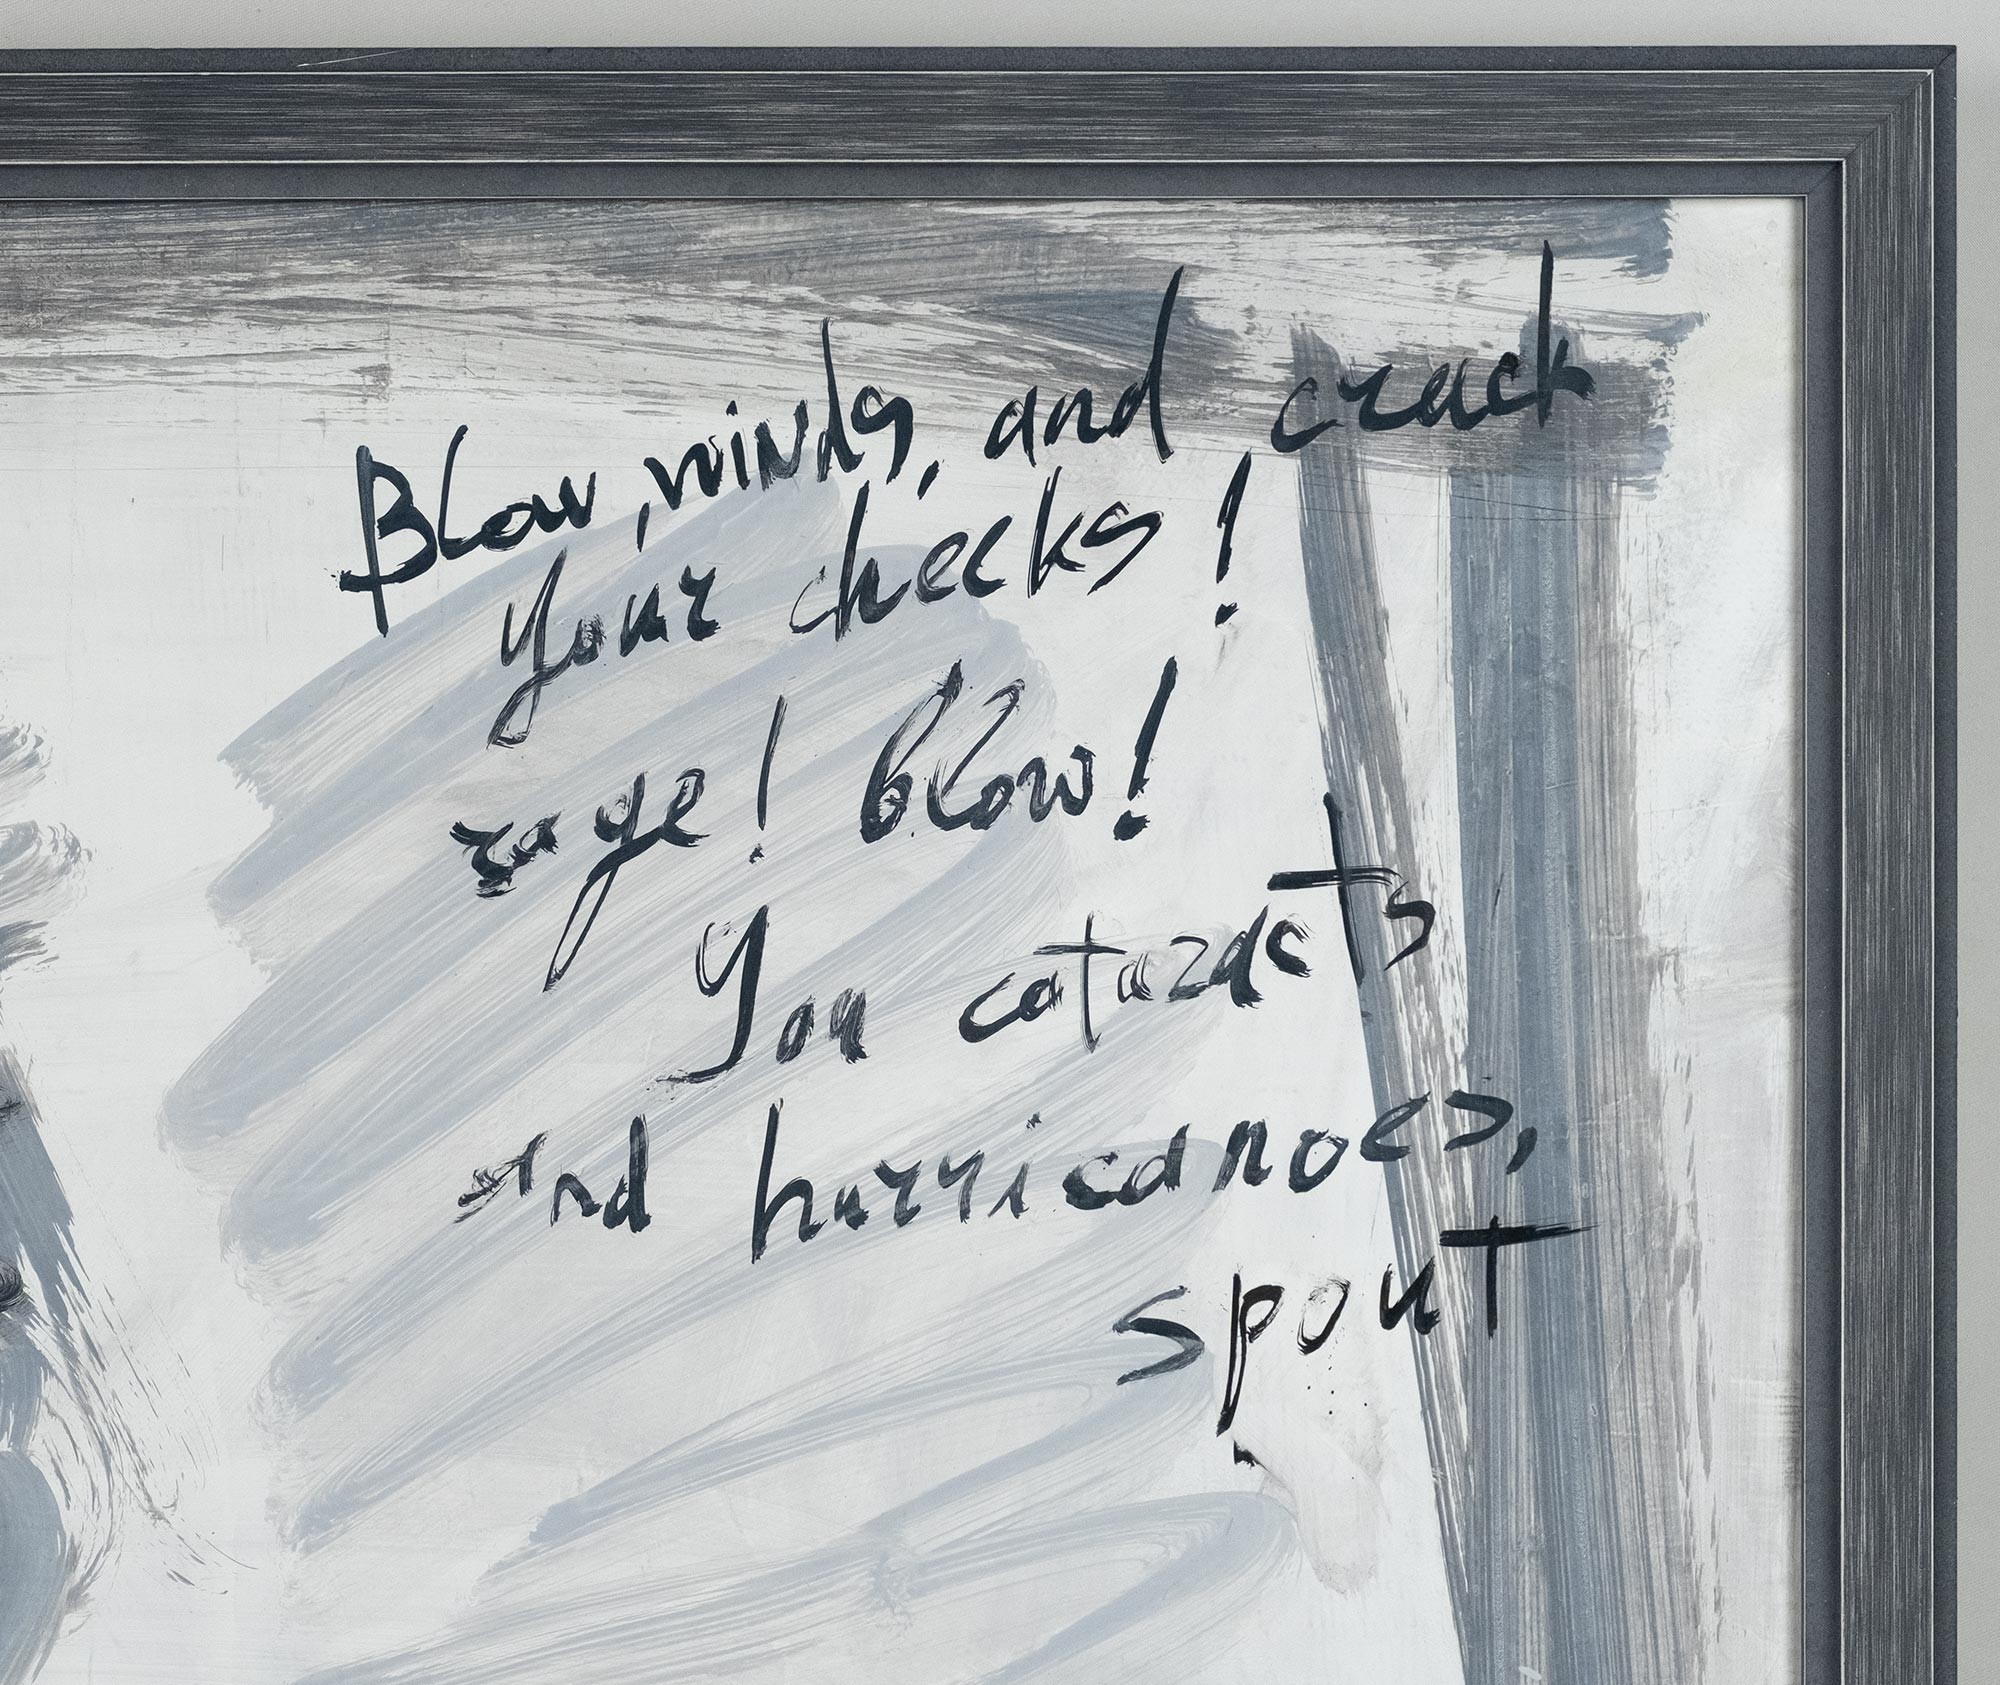 Blow, winds, and crack
your cheeks!
rage! blow!
You cataracts
and hurricanoes,
spout